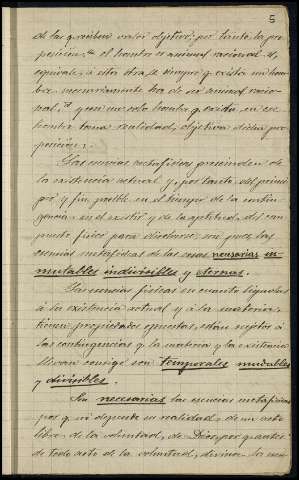 5
de las que reciben valor objetivo; por tanto la pro-
posicion "el hombre es animal racional",
equivale, á esta otra "si siempre q. exista un hom-
bre necesariamente ha de ser animal racio-
nal," y que un solo hombre q. exista, en ese
hombre tiene realidad objetiva dicha pro-
posicion.
Las esencias metafísicas prescinden de
la existencia actual y, por tanto, del princi-
pio y fin, posible en el tiempo de la contin-
gencia en el existir y de la aptitud, del com-
puesto físico para disolverse; son pues, las
esencias metafísicas de las cosas necesarias in-
mutables indivisibles y eternas.
Las esencias físicas en cuanto ligadas
á la existencia actual y á la materia,
tienen propiedades opuestas, están sujetas á
las contingencias q. la materia y la existencia
llevan consigo son temporales mudables
y divisibles.
Son necesarias las esencias metafísicas
pos q. ni depende su realidad, de un acto
libre de la voluntad, de Dios, por q. antes
de todo acto de la voluntad, divina las